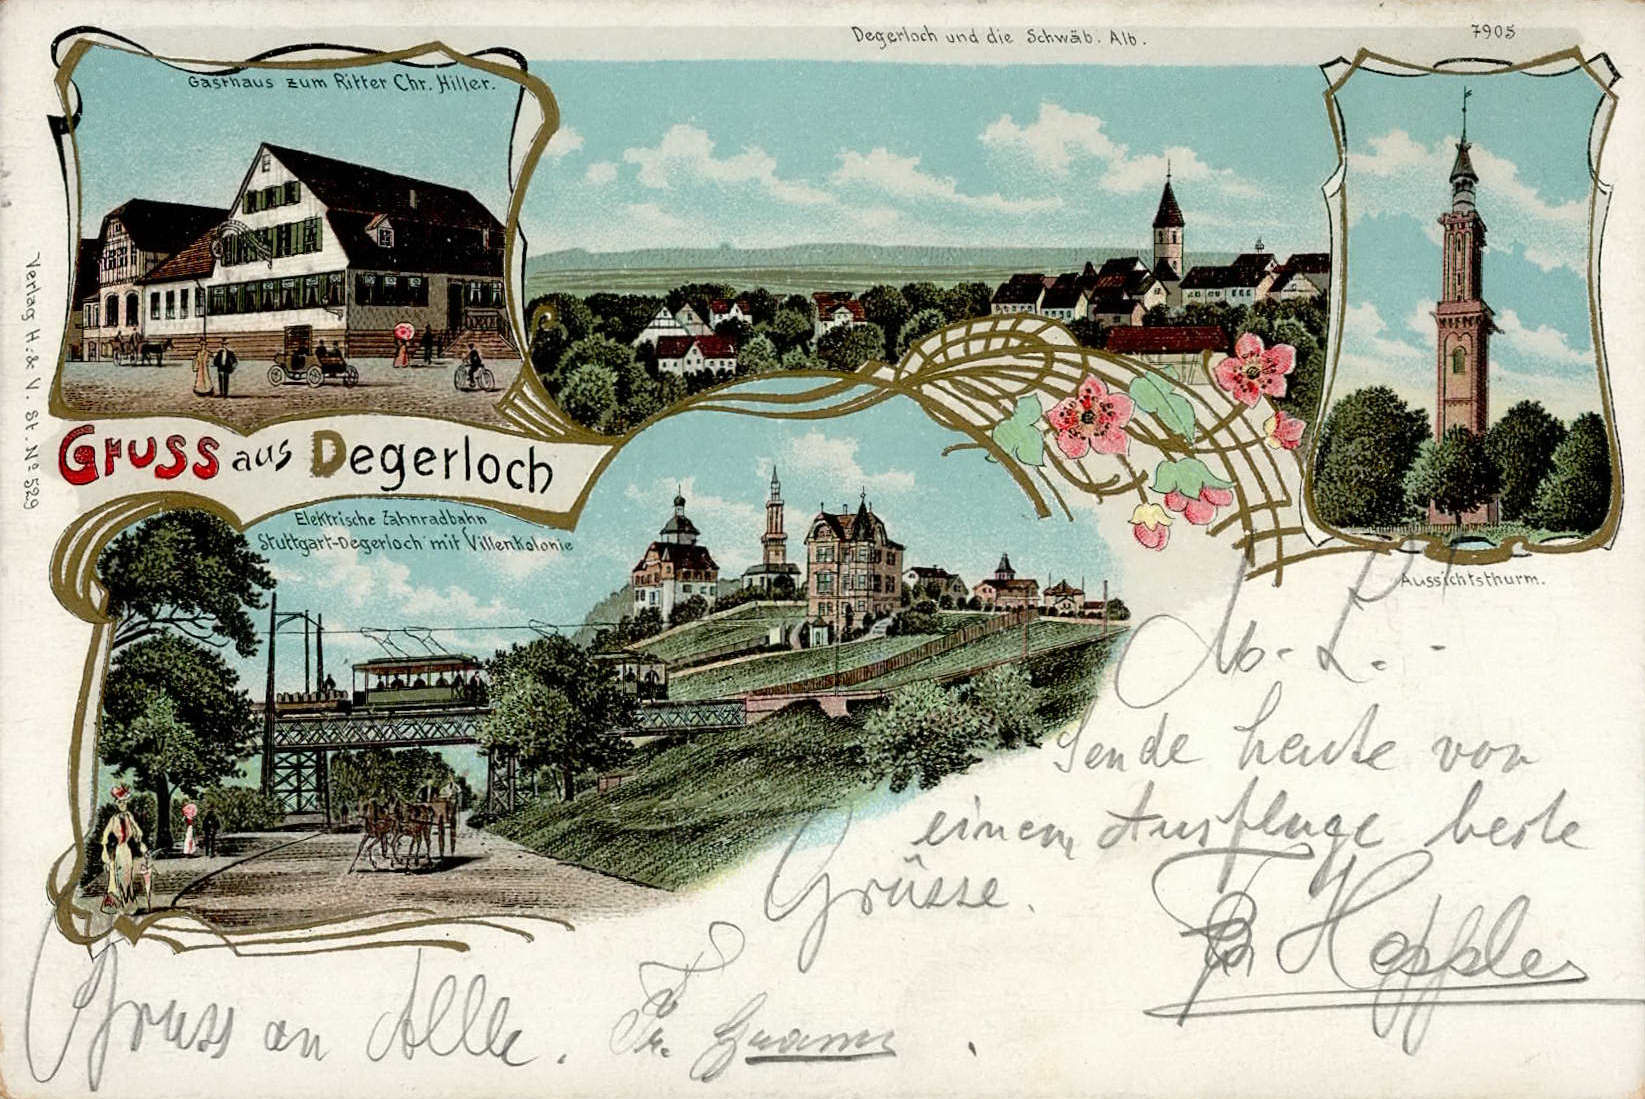 Degerloch und die Schwäb. Alb.
7905
Gasthaus zum Ritter Chr. Hiller.
Verlag H. & V. St. No 529
Gruss aus Degerloch
Elektrische Zahnradbahn
Stuttgart-Degerloch mit Villenkolonie
Aussichtsthurm.
Sende heute von
einem Ausfluge beste
Grüsse.
Gruss an Alle.